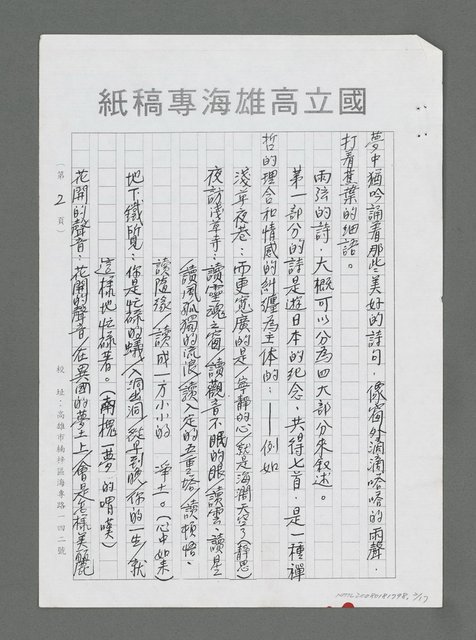 國立高雄海專稿紙
夢中猶吟誦着那些美好的詩句，像窗外滴滴嗒嗒的雨聲，
打着蕉葉的細語。
雨弦的詩，大概可以分為四大部分來敘述。
第一部分的詩是遊日本的紀念，共得七首，是一種禪
哲的理合和情感的糾纏為主体的：——例如
淺草夜巷：而更寬廣的是／寧靜的心／就是海濶天空了（靜思）
夜訪淺草寺：讀靈魂之窗／讀觀音不眠的眼／讀雲、讀星
／讀風孤獨的流浪／讀入定的五重塔／讀頓悟、
讀隨緣／讀成一方小小的 淨土。（心中如來）
地下鐵所見：你是忙碌的蟻／入洞出洞／從早到晚你的一生／就
這樣地忙碌著。（南槐一夢的喟嘆）
花開的聲音：花開的聲音／在異國的夢土上／會是怎樣美麗
（第 2 頁）
校址：高雄市楠梓區海專路一四二號
NMTL20080181798 2/17